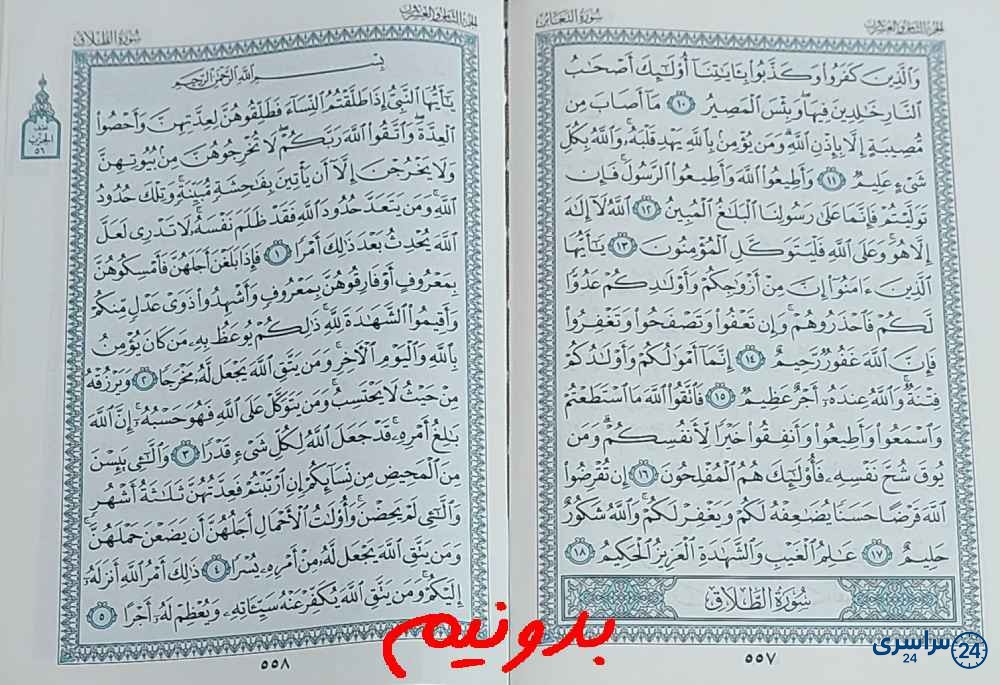 الجزء الثامن والعشرون
سورة التغابن
وَالَّذِينَ كَفَرُوا وَكَذَّبُوا بِآيَاتِنَا أُولَٰئِكَ أَصْحَابُ
النَّارِ خَالِدِينَ فِيهَا وَبِئْسَ الْمَصِيرُ ١٠ مَا أَصَابَ مِن
مُّصِيبَةٍ إِلَّا بِإِذْنِ اللَّهِ وَمَن يُؤْمِن بِاللَّهِ يَهْدِ قَلْبَهُ وَاللَّهُ بِكُلِّ
شَيْءٍ عَلِيمٌ ١١ وَأَطِيعُوا اللَّهَ وَأَطِيعُوا الرَّسُولَ فَإِن
تَوَلَّيْتُمْ فَإِنَّمَا عَلَىٰ رَسُولِنَا الْبَلَاغُ الْمُبِينُ ١٢ اللَّهُ لَا إِلَٰهَ
إِلَّا هُوَ وَعَلَى اللَّهِ فَلْيَتَوَكَّلِ الْمُؤْمِنُونَ ١٣ يَا أَيُّهَا
الَّذِينَ آمَنُوا إِنَّ مِنْ أَزْوَاجِكُمْ وَأَوْلَادِكُمْ عَدُوًّا
لَّكُمْ فَاحْذَرُوهُمْ وَإِن تَعْفُوا وَتَصْفَحُوا وَتَغْفِرُوا
فَإِنَّ اللَّهَ غَفُورٌ رَّحِيمٌ ١٤ إِنَّمَا أَمْوَالُكُمْ وَأَوْلَادُكُمْ
فِتْنَةٌ وَاللَّهُ عِندَهُ أَجْرٌ عَظِيمٌ ١٥ فَاتَّقُوا اللَّهَ مَا اسْتَطَعْتُمْ
وَاسْمَعُوا وَأَطِيعُوا وَأَنفِقُوا خَيْرًا لِّأَنفُسِكُمْ وَمَن
يُوقَ شُحَّ نَفْسِهِ فَأُولَٰئِكَ هُمُ الْمُفْلِحُونَ ١٦ إِن تُقْرِضُوا
اللَّهَ قَرْضًا حَسَنًا يُضَاعِفْهُ لَكُمْ وَيَغْفِرْ لَكُمْ وَاللَّهُ شَكُورٌ
حَلِيمٌ ١٧ عَالِمُ الْغَيْبِ وَالشَّهَادَةِ الْعَزِيزُ الْحَكِيمُ ١٨
سُورَةُ الطَّلَاقِ
٥٥٧
الجزء الثامن والعشرون
سورة الطلاق
بِسْمِ اللَّهِ الرَّحْمَٰنِ الرَّحِيمِ
يَا أَيُّهَا النَّبِيُّ إِذَا طَلَّقْتُمُ النِّسَاءَ فَطَلِّقُوهُنَّ لِعِدَّتِهِنَّ وَأَحْصُوا
الْعِدَّةَ وَاتَّقُوا اللَّهَ رَبَّكُمْ لَا تُخْرِجُوهُنَّ مِن بُيُوتِهِنَّ
وَلَا يَخْرُجْنَ إِلَّا أَن يَأْتِينَ بِفَاحِشَةٍ مُّبَيِّنَةٍ وَتِلْكَ حُدُودُ
اللَّهِ وَمَن يَتَعَدَّ حُدُودَ اللَّهِ فَقَدْ ظَلَمَ نَفْسَهُ لَا تَدْرِي لَعَلَّ
اللَّهَ يُحْدِثُ بَعْدَ ذَٰلِكَ أَمْرًا ١ فَإِذَا بَلَغْنَ أَجَلَهُنَّ فَأَمْسِكُوهُنَّ
بِمَعْرُوفٍ أَوْ فَارِقُوهُنَّ بِمَعْرُوفٍ وَأَشْهِدُوا ذَوَيْ عَدْلٍ مِّنكُمْ
وَأَقِيمُوا الشَّهَادَةَ لِلَّهِ ذَٰلِكُمْ يُوعَظُ بِهِ مَن كَانَ يُؤْمِنُ
بِاللَّهِ وَالْيَوْمِ الْآخِرِ وَمَن يَتَّقِ اللَّهَ يَجْعَل لَّهُ مَخْرَجًا ٢ وَيَرْزُقْهُ
مِنْ حَيْثُ لَا يَحْتَسِبُ وَمَن يَتَوَكَّلْ عَلَى اللَّهِ فَهُوَ حَسْبُهُ إِنَّ اللَّهَ
بَالِغُ أَمْرِهِ قَدْ جَعَلَ اللَّهُ لِكُلِّ شَيْءٍ قَدْرًا ٣ وَاللَّائِي يَئِسْنَ
مِنَ الْمَحِيضِ مِن نِّسَائِكُمْ إِنِ ارْتَبْتُمْ فَعِدَّتُهُنَّ ثَلَاثَةُ أَشْهُرٍ
وَاللَّائِي لَمْ يَحِضْنَ وَأُولَاتُ الْأَحْمَالِ أَجَلُهُنَّ أَن يَضَعْنَ حَمْلَهُنَّ
وَمَن يَتَّقِ اللَّهَ يَجْعَل لَّهُ مِنْ أَمْرِهِ يُسْرًا ٤ ذَٰلِكَ أَمْرُ اللَّهِ أَنزَلَهُ
إِلَيْكُمْ وَمَن يَتَّقِ اللَّهَ يُكَفِّرْ عَنْهُ سَيِّئَاتِهِ وَيُعْظِمْ لَهُ أَجْرًا ٥
٥٥٨
نصف
الحزب
٥٦
بدونیم
سراسری 24
24